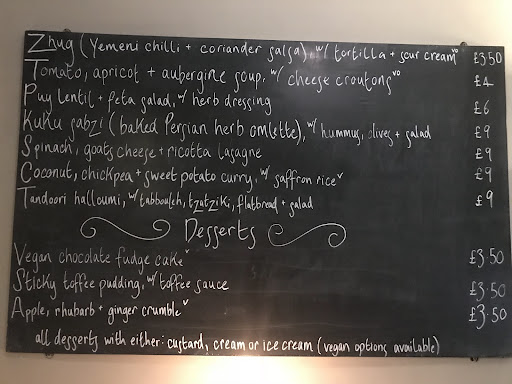 Zhug (Yemeni chilli + coriander salsa), w/ tortilla + sour cream vo £3.50
Tomato, apricot + aubergine soup, w/ cheese croutons vo £4
Puy lentil + feta salad, w/ herb dressing £6
Kuku sabzi (baked Persian herb omlette), w/ hummus, olives + salad £9
Spinach, goats cheese + ricotta lasagne £9
Coconut, chickpea + sweet potato curry, w/ saffron rice v £9
Tandoori halloumi, w/ tabbouleh, tzatziki, flatbread + salad £9
Desserts
Vegan chocolate fudge cake v £3.50
Sticky toffee pudding, w/ toffee sauce £3.50
Apple, rhubarb + ginger crumble v £3.50
all desserts with either: custard, cream or ice cream (vegan options available)